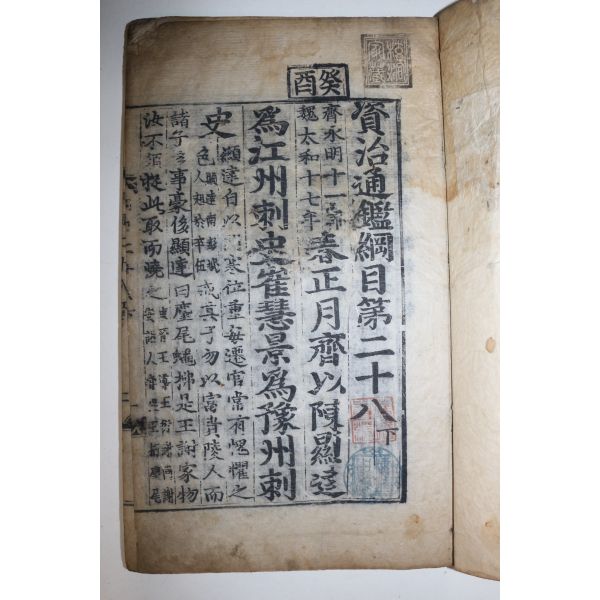 癸酉
資治通鑑綱目第二十八下
齊永明十一年
魏太和十七年
春正月齊以陳顯達
爲江州刺史崔慧景爲豫州刺
史
顯達自以門寒位重每遷官常有愧懼之
色
顯達南彭城
人起於卒伍
戒其子勿以富貴陵人而
諸子多事豪侈顯達曰麈尾蠅拂是王謝家物
汝不須捉此取而燒之